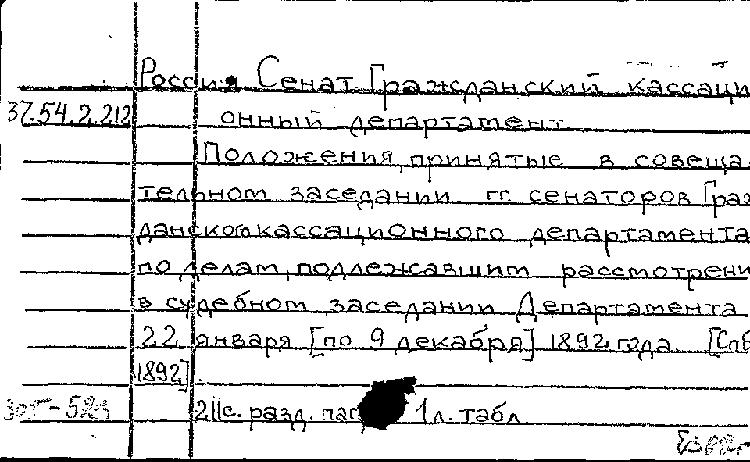 Россия. Сенат. Гражданский кассаци
37.54.2.212
онный департамент
Положения, принятые в совеща-
тельном заседании гг. сенаторов Граж
данского кассационного департамента
по делам, подлежавшим рассмотрени
в судебном заседании Департамента
22 января [по 9 декабря] 1892 года. [Спб
1892].
211с. разд. паг 1 л. табл